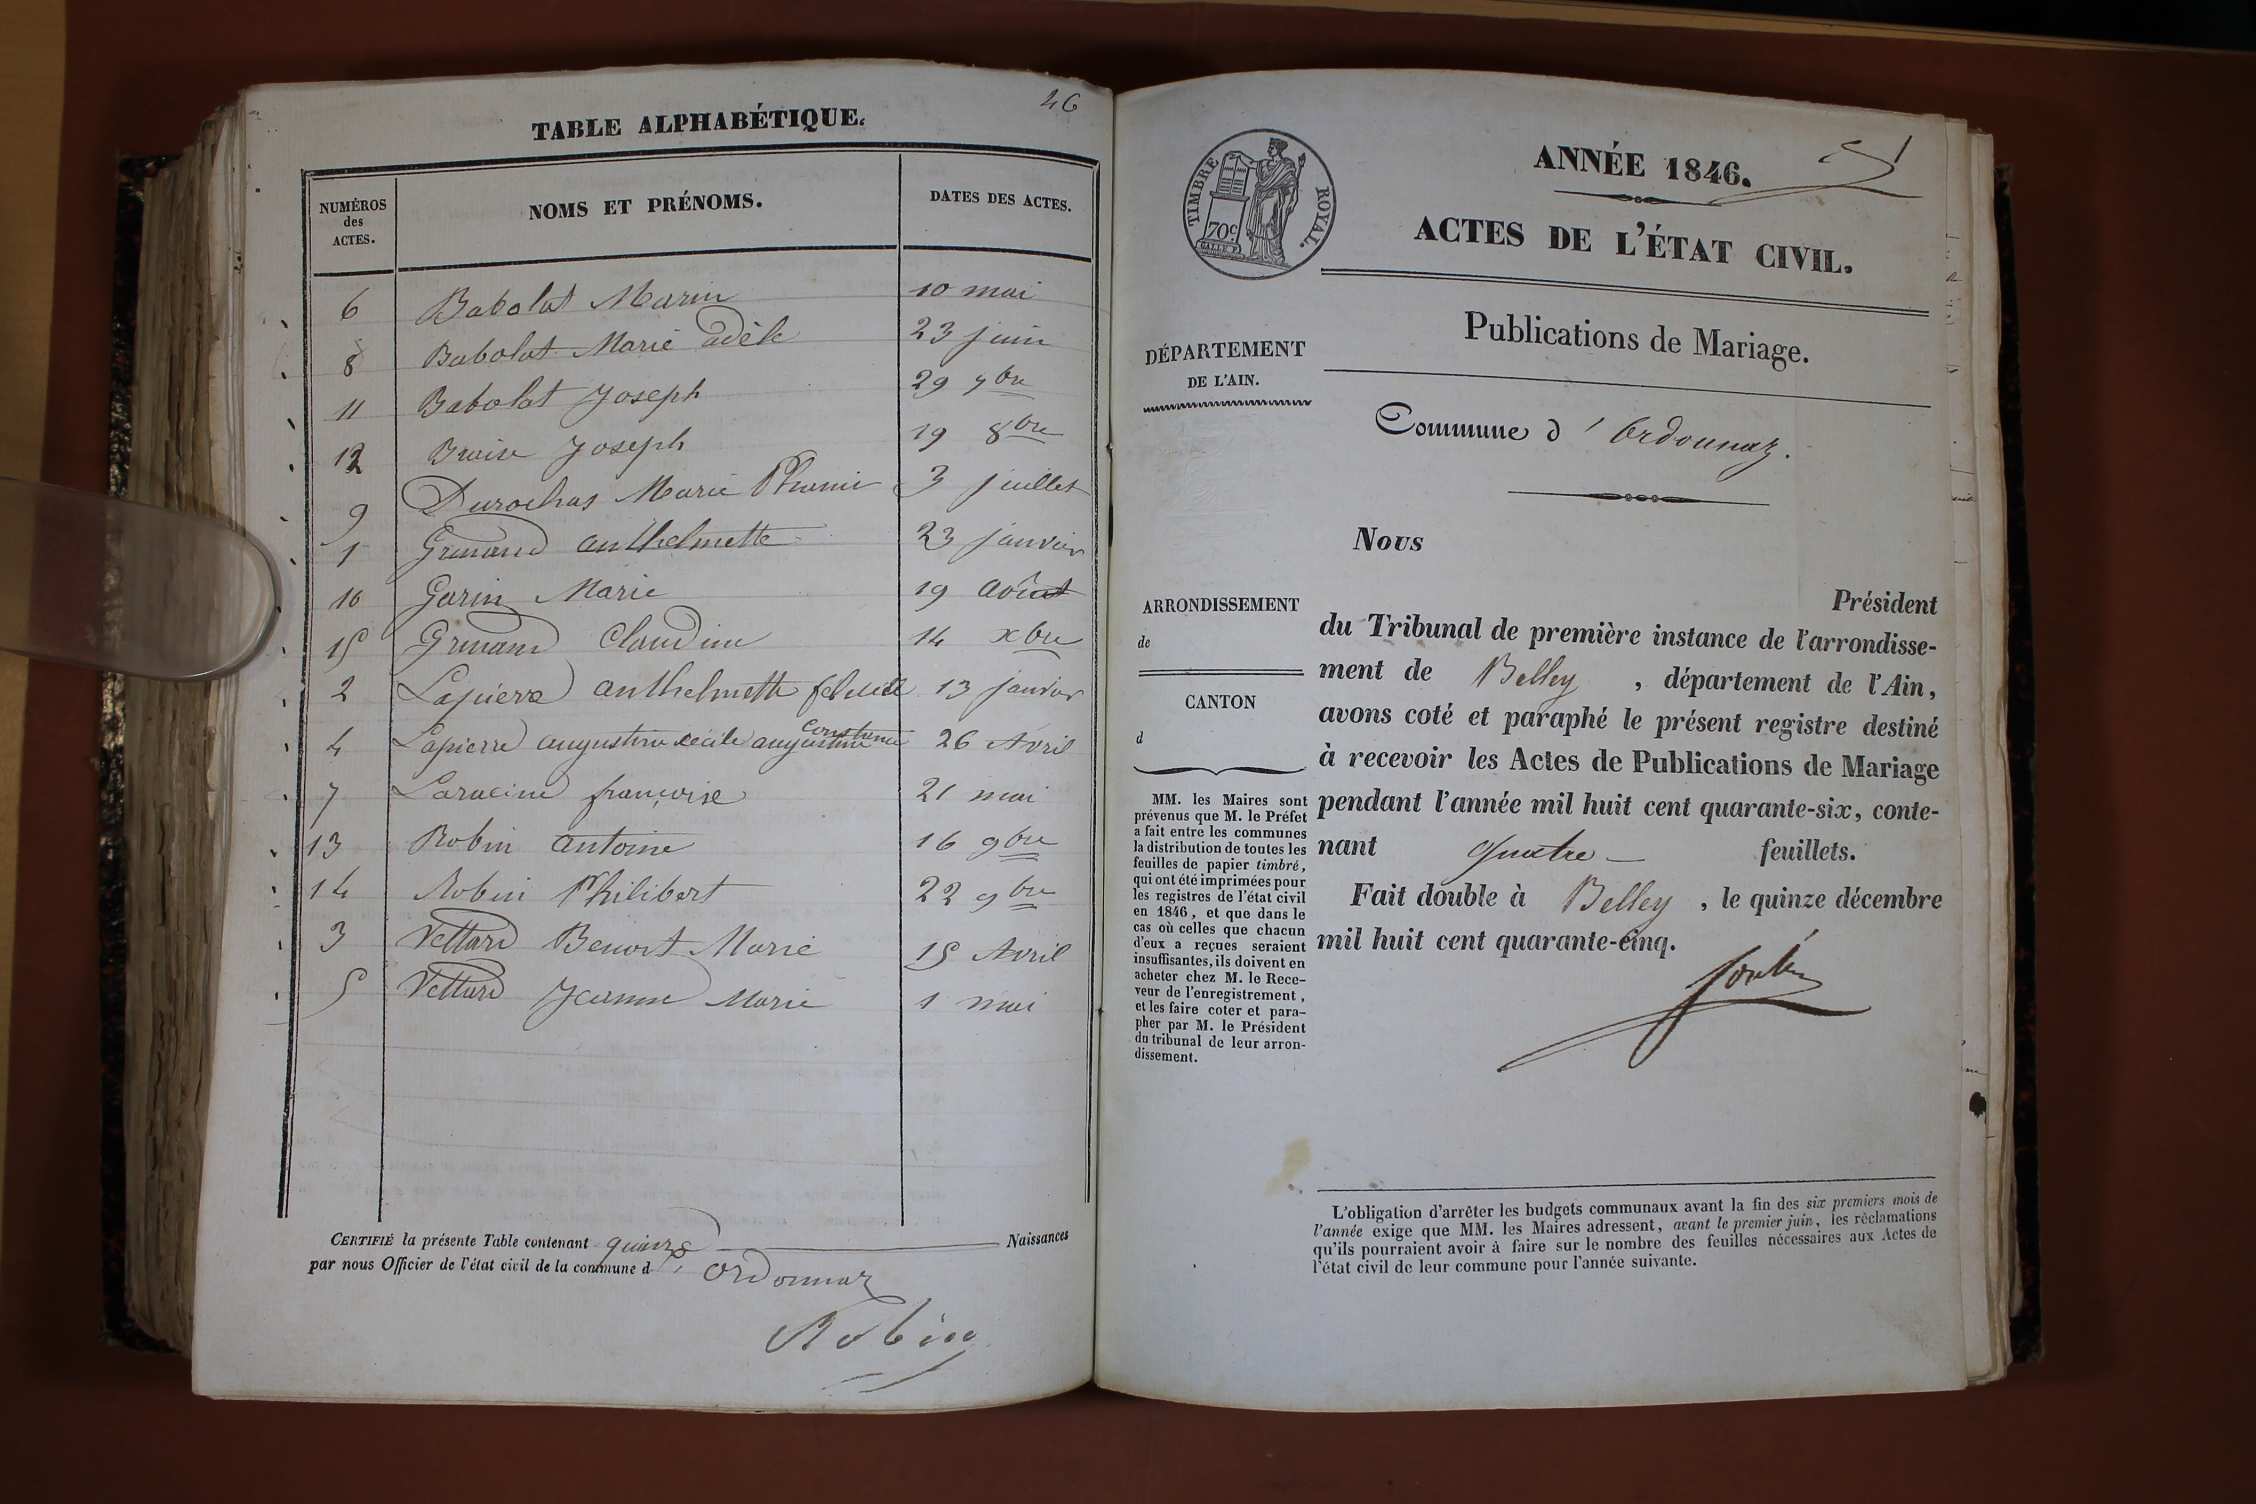 46
TABLE ALPHABÉTIQUE.
NUMÉROS
des
ACTES.
NOMS ET PRÉNOMS.
DATES DES ACTES.
6 Babolat Marin 10 mai
8 Babolat Marie adèle 23 juin
11 Babolat Joseph 29 7bre
12 Joseph 19 8bre
9 Durochas Marie 3 juillet
1 anthelmette 23 janvier
10 Garin Marie 19 Août
15 Claudine 14 xbre
2 Lapierre anthelmette 13 janvier
4 Lapierre augustine cécile augustine 26 Avril
7 Laracine françoise 21 mai
13 Robin antoine 16 9bre
14 Robin Philibert 22 9bre
3 Vettard Benoit Marie 15 Avril
5 Vettard Jeanne Marie 1 mai
CERTIFIÉ la présente Table contenant quinze Naissances
par nous Officier de l'état civil de la commune d' ordonnaz
Robin
TIMBRE ROYAL.
70c
GALLE F.
ANNÉE 1846.
ACTES DE L'ÉTAT CIVIL.
Publications de Mariage.
DÉPARTEMENT
DE L'AIN.
Commune d' Ordonnaz.
ARRONDISSEMENT
de
CANTON
d
MM. les Maires sont
prévenus que M. le Préfet
a fait entre les communes
la distribution de toutes les
feuilles de papier timbré,
qui ont été imprimées pour
les registres de l'état civil
en 1846, et que dans le
cas où celles que chacun
d'eux a reçues seraient
insuffisantes, ils doivent en
acheter chez M. le Rece-
veur de l'enregistrement,
et les faire coter et para-
pher par M. le Président
du tribunal de leur arron-
dissement.
Nous
Président
du Tribunal de première instance de l'arrondisse-
ment de Belley , département de l'Ain,
avons coté et paraphé le présent registre destiné
à recevoir les Actes de Publications de Mariage
pendant l'année mil huit cent quarante-six, conte-
nant quatre feuillets.
Fait double à Belley , le quinze décembre
mil huit cent quarante-cinq.
L'obligation d'arrêter les budgets communaux avant la fin des six premiers mois de
l'année exige que MM. les Maires adressent, avant le premier juin, les réclamations
qu'ils pourraient avoir à faire sur le nombre des feuilles nécessaires aux Actes de
l'état civil de leur commune pour l'année suivante.